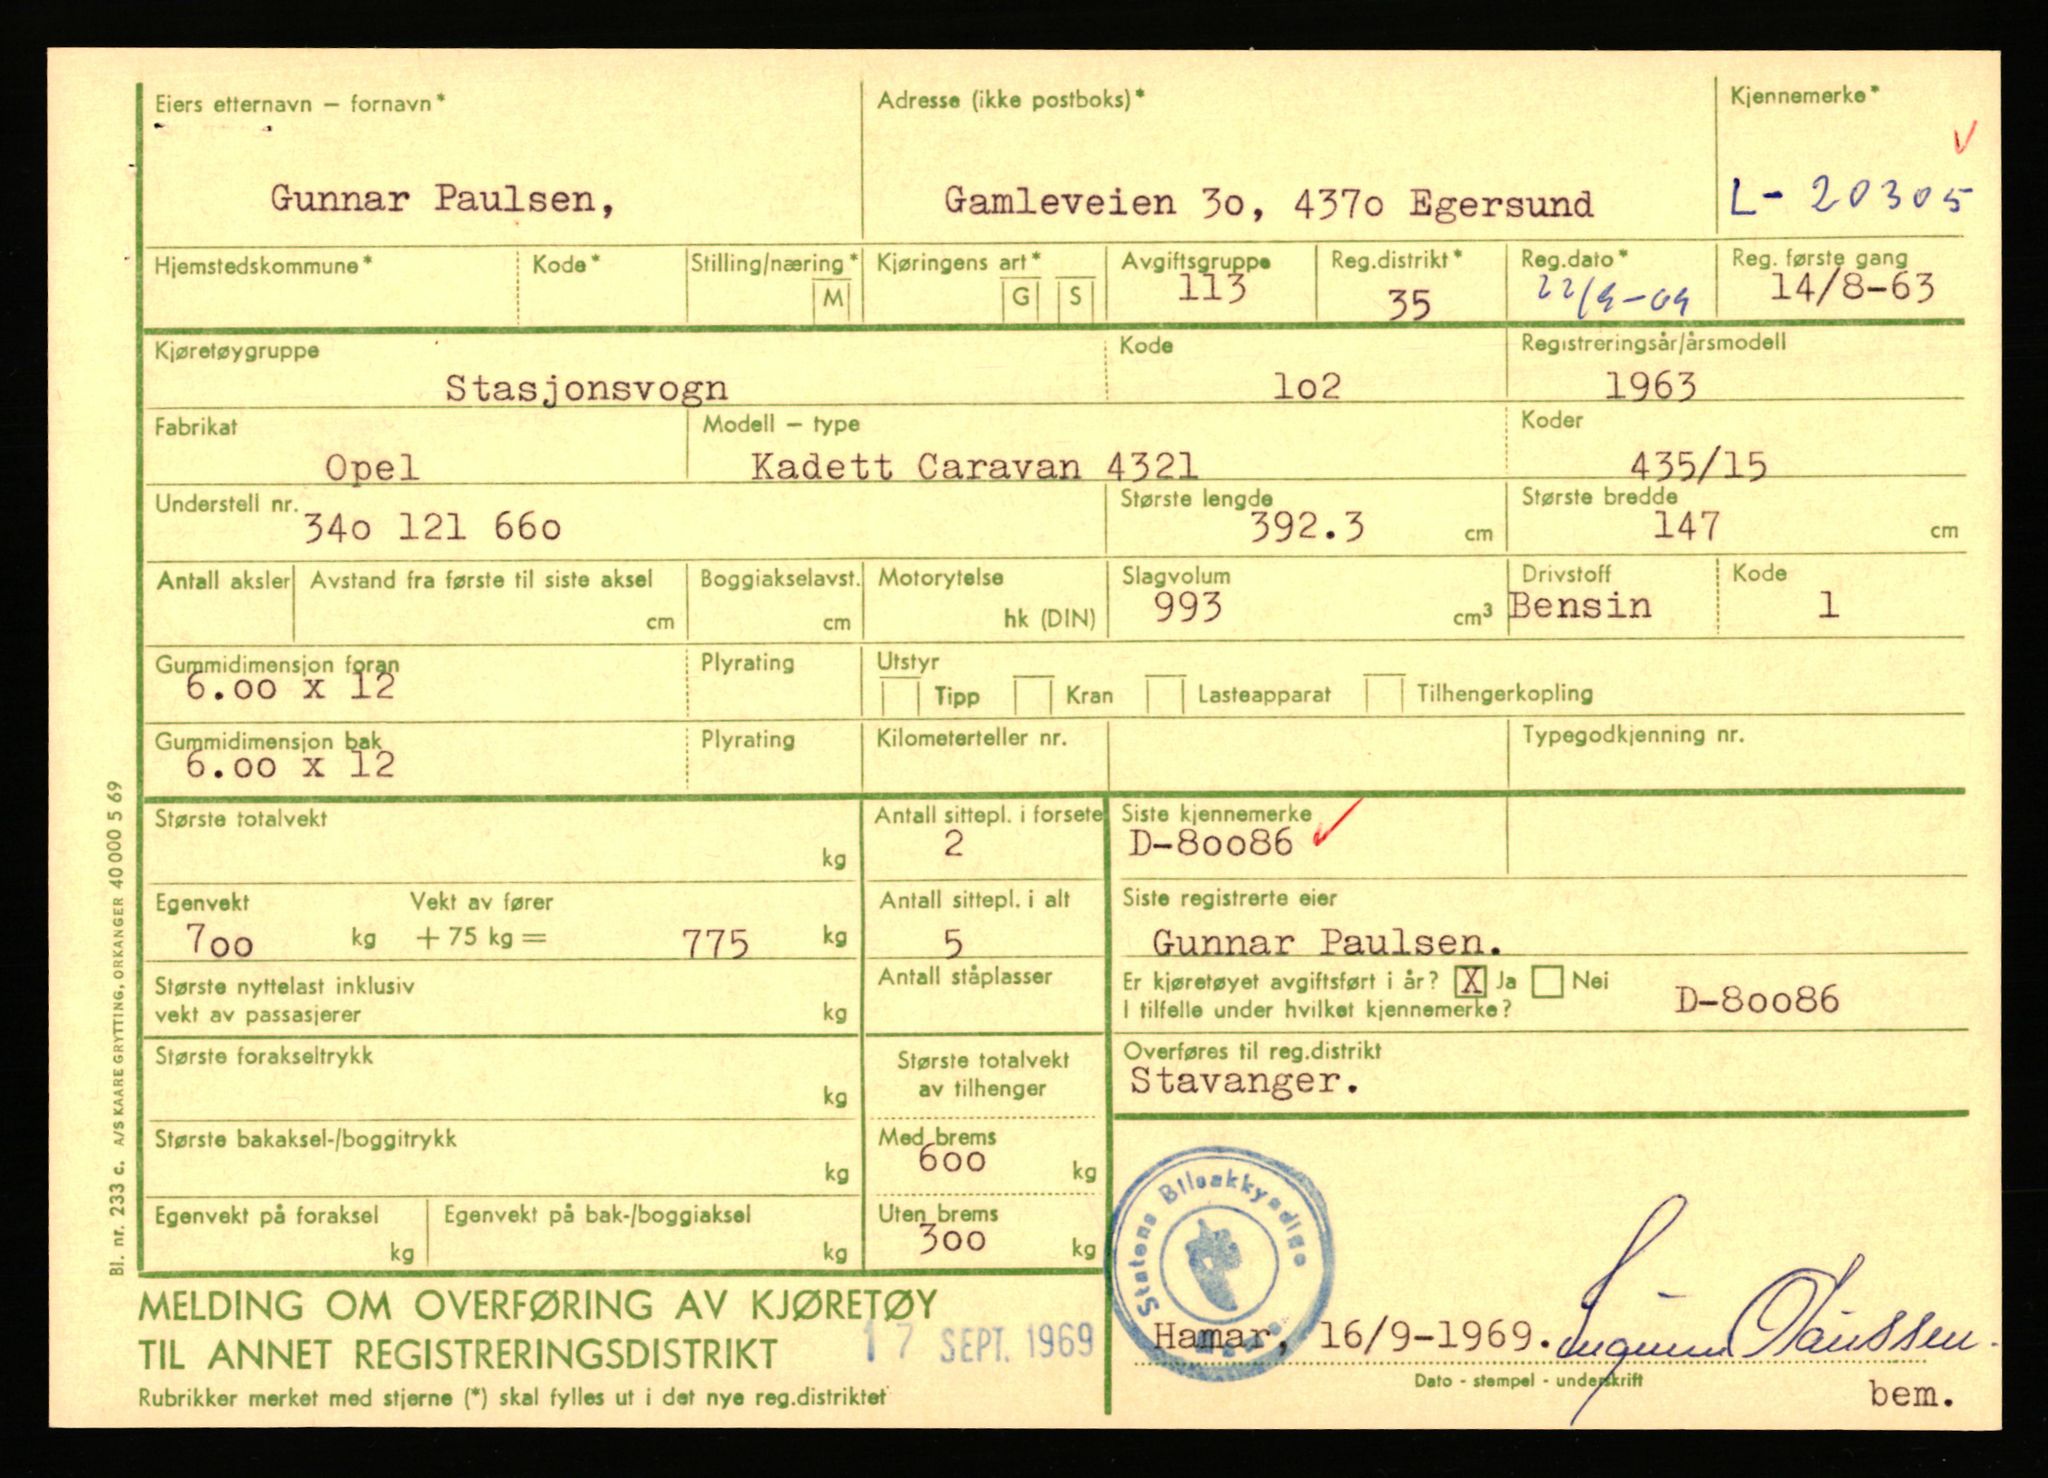 Eiers etternavn – fornavn* Adresse (ikke postboks)* Kjennemerke*
Gunnar Paulsen, Gamleveien 3o, 437o Egersund L- 20305
Hjemstedskommune* Kode* Stilling/næring* M Kjøringens art* G S Avgiftsgruppe Reg.distrikt* Reg.dato* Reg. første gang
113 35 22/9-69 14/8-63
Kjøretøygruppe Kode Registreringsår/årsmodell
Stasjonsvogn 1o2 1963
Fabrikat Modell – type Koder
Opel Kadett Caravan 4321 435/15
Understell nr. Største lengde Største bredde
34o 121 66o 392.3 cm 147 cm
Antall aksler Avstand fra første til siste aksel Boggiakselavst. Motorytelse Slagvolum Drivstoff Kode
cm cm hk (DIN) 993 cm3 Bensin 1
Gummidimensjon foran Plyrating Utstyr
6.oo x 12 Tipp Kran Lasteapparat Tilhengerkopling
Gummidimensjon bak Plyrating Kilometerteller nr. Typegodkjenning nr.
6.oo x 12
Største totalvekt Antall sittepl. i forsete Siste kjennemerke
kg 2 D-8oo86
Egenvekt Vekt av fører Antall sittepl. i alt Siste registrerte eier
7oo kg + 75 kg = 775 kg 5 Gunnar Paulsen.
Største nyttelast inklusiv Antall ståplasser Er kjøretøyet avgiftsført i år? X Ja Nei
vekt av passasjerer kg I tilfelle under hvilket kjennemerke? D-8oo86
Største forakseltrykk Største totalvekt Overføres til reg.distrikt
kg av tilhenger Stavanger.
Største bakaksel-/boggitrykk Med brems
kg 6oo kg
Egenvekt på foraksel Egenvekt på bak-/boggiaksel Uten brems
kg kg 3oo kg
Statens Bilsakkyndige
MELDING OM OVERFØRING AV KJØRETØY
TIL ANNET REGISTRERINGSDISTRIKT 17 SEPT. 1969 Hamar, 16/9-1969.
Dato - stempel - underskrift
Rubrikker merket med stjerne (*) skal fylles ut i det nye reg.distriktet bem.
Bl. nr. 233 c. A/S KAARE GRYTTING, ORKANGER 40 000 5 69